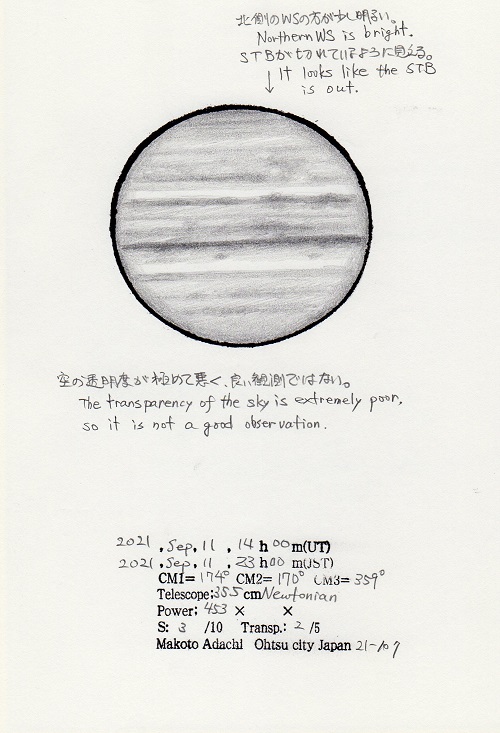 北側のWSの方が少し明るい。
Northern WS is bright.
STBが切れているように見える。
It looks like the STB
is out.
空の透明度が極めて悪く、良い観測ではない。
The transparency of the sky is extremely poor,
so it is not a good observation.
2021 , Sep, 11 , 14 h 00 m(UT)
2021 , Sep, 11 , 23 h 00 m(JST)
CM1= 174° CM2= 170° CM3= 359°
Telescope; 355 cm Newtonian
Power; 453 × ×
S: 3 /10 Transp.: 2 /5
Makoto Adachi Ohtsu city Japan 21-109